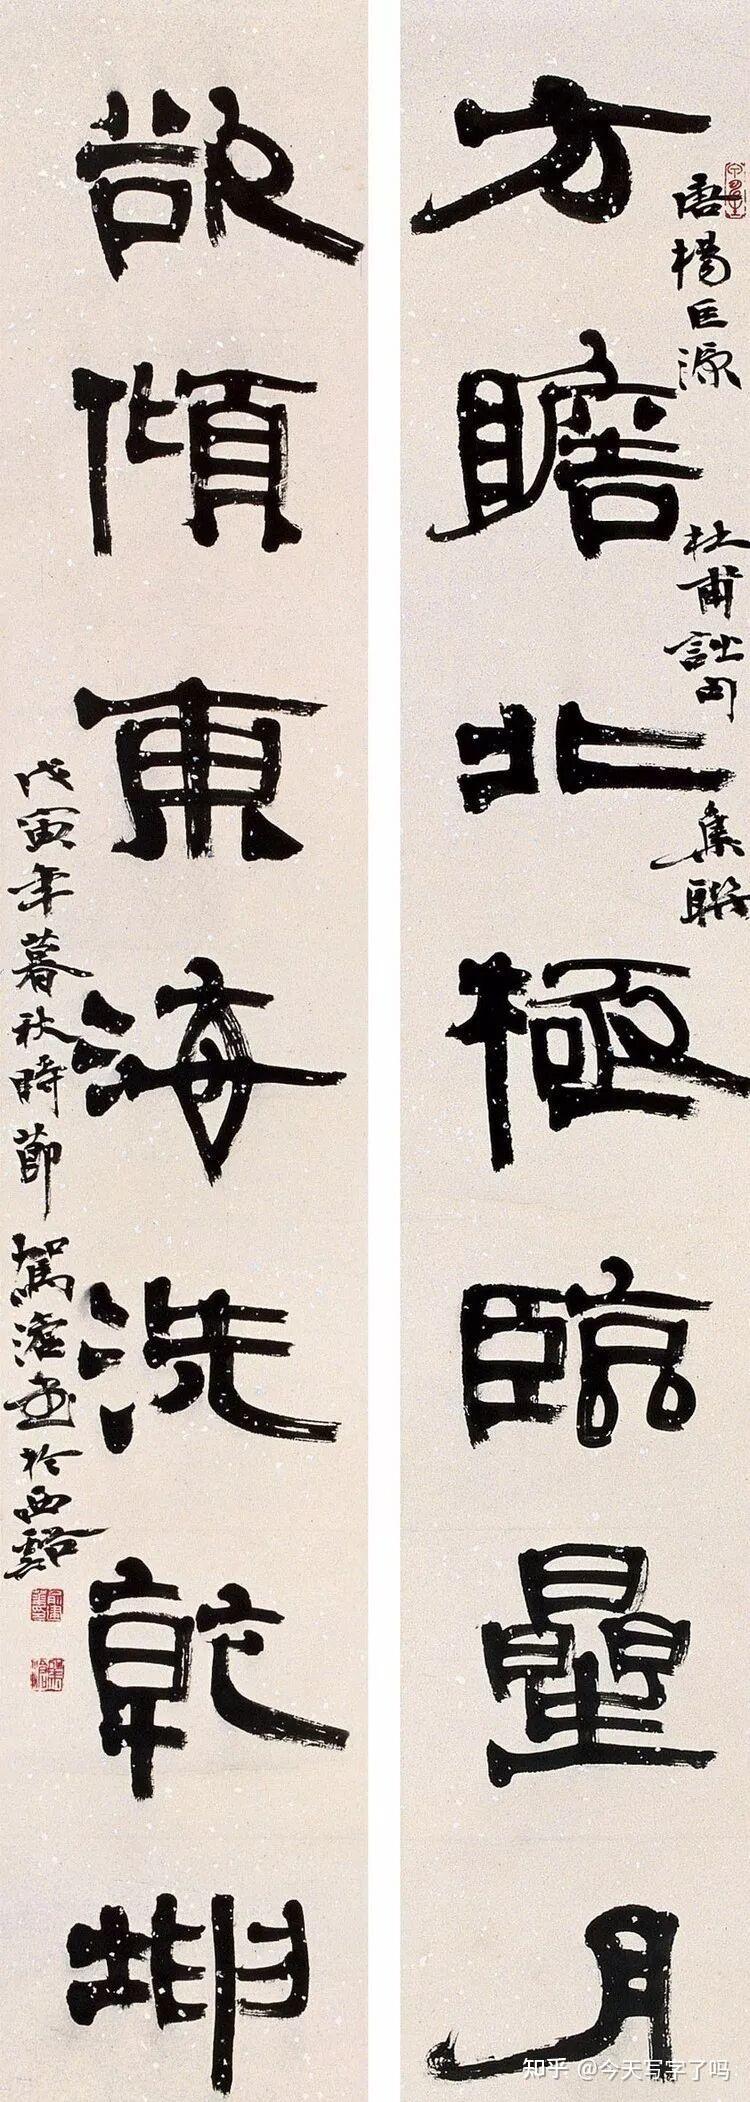 方瞻北極臨曐月
唐楊巨源
杜甫詩句
集聯
欲傾東海洗乾坤
戊寅年暮秋時節
駕滄書於西谿
知乎 @今天写字了吗